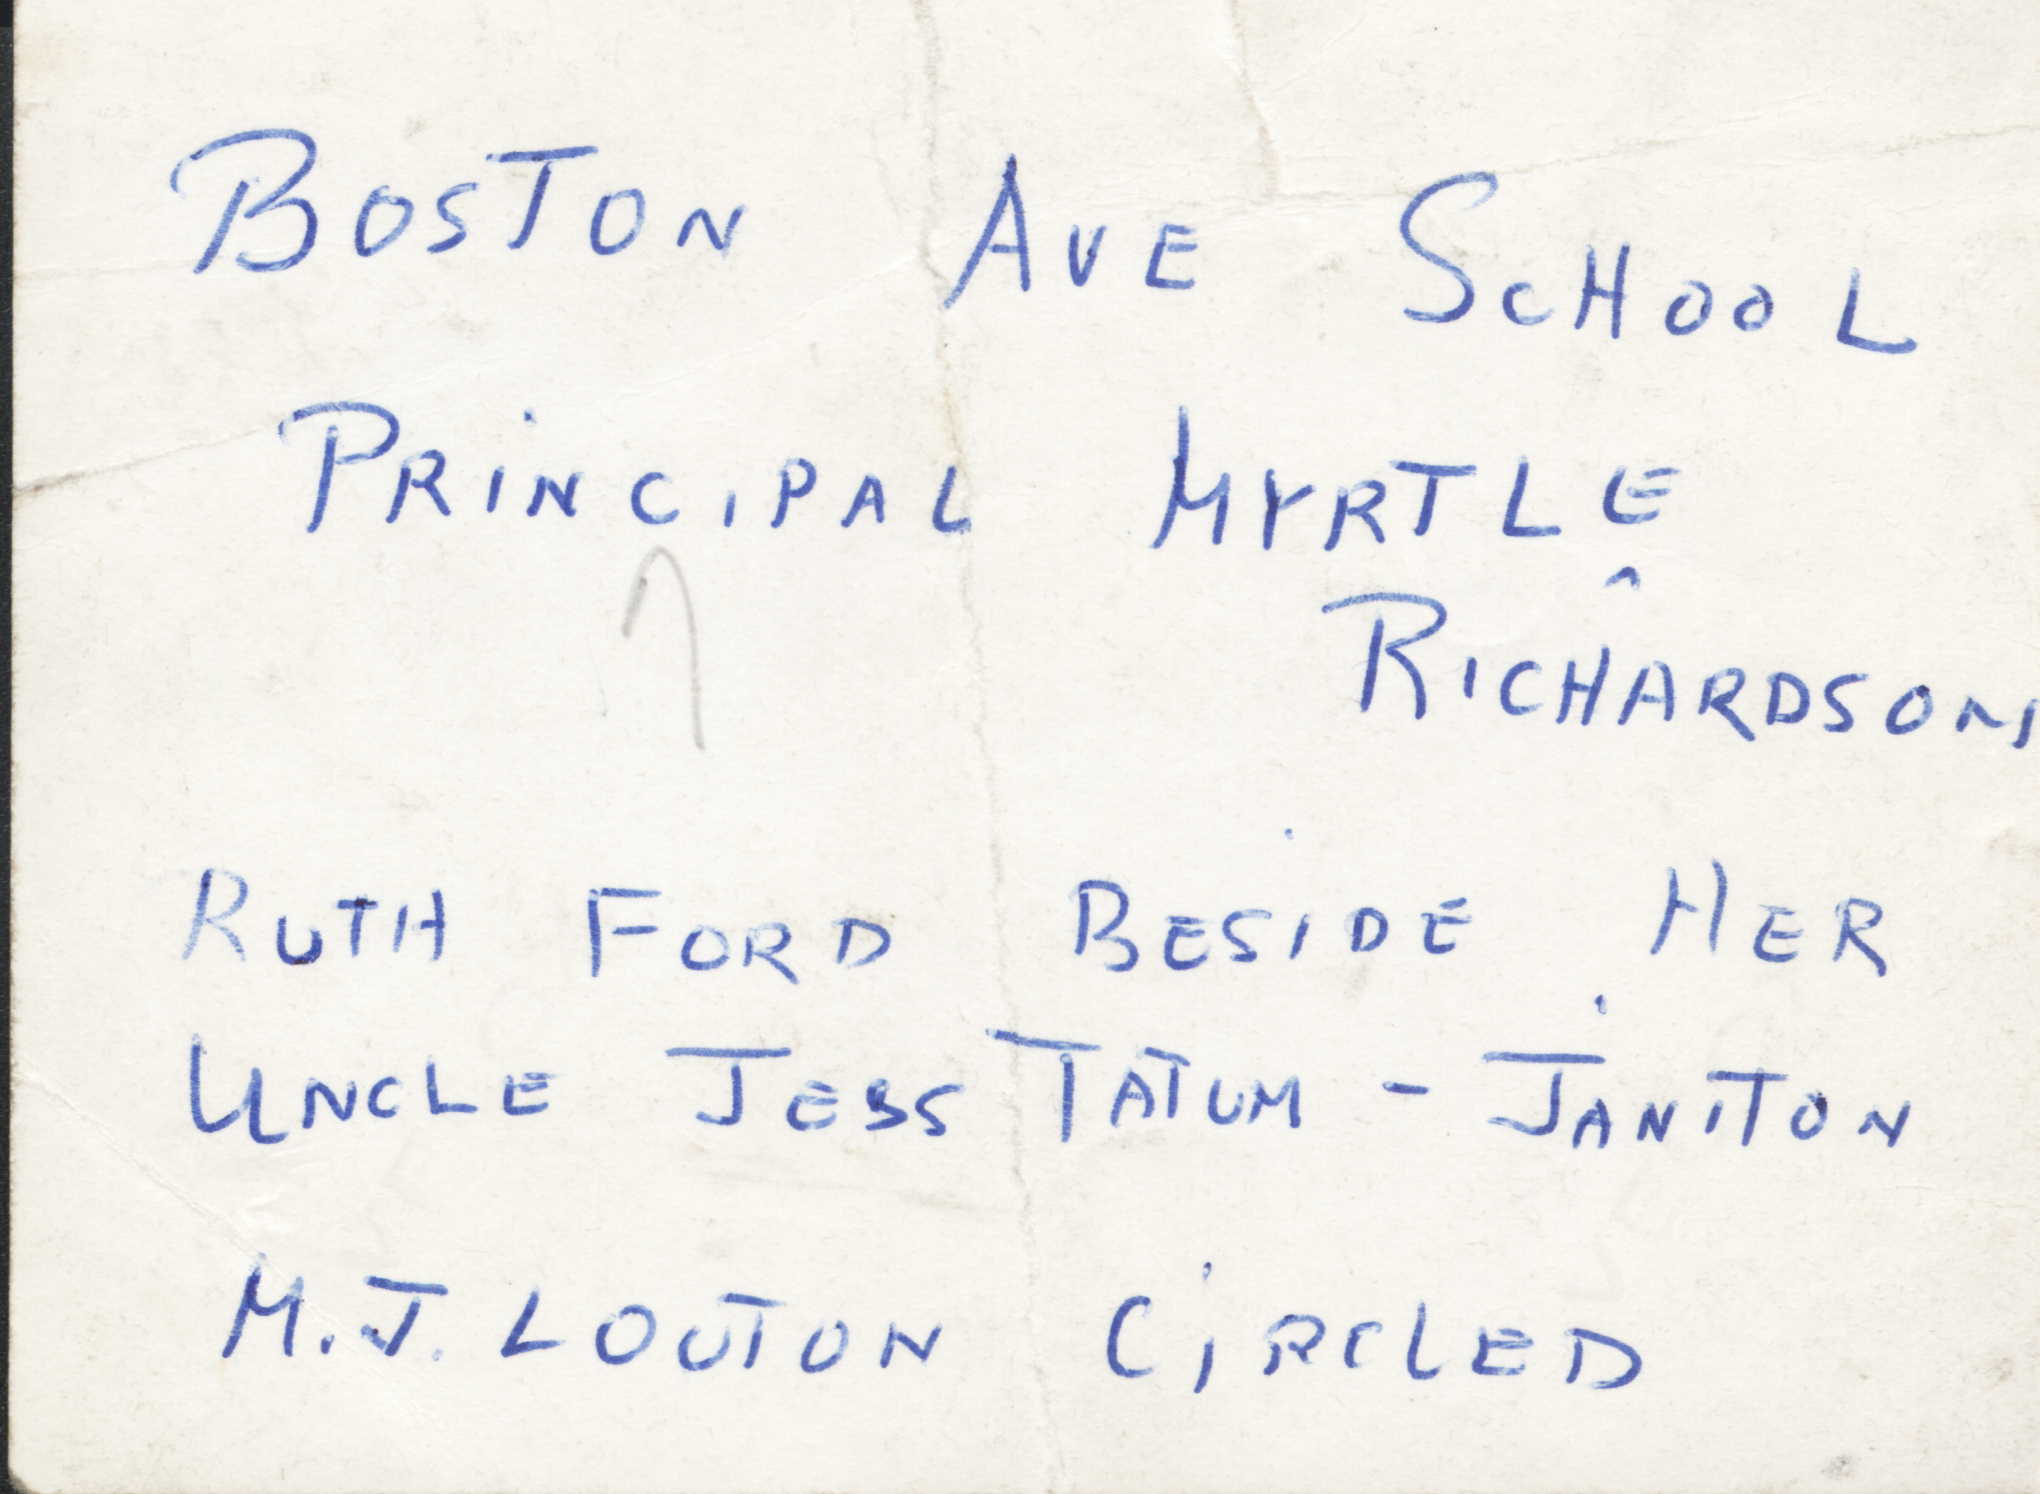 BOSTON AVE SCHOOL
PRINCIPAL MYRTLE
RICHARDSON
RUTH FORD BESIDE HER
UNCLE JESS TATUM - JANITON
M.J. LOUTON CIRCLED